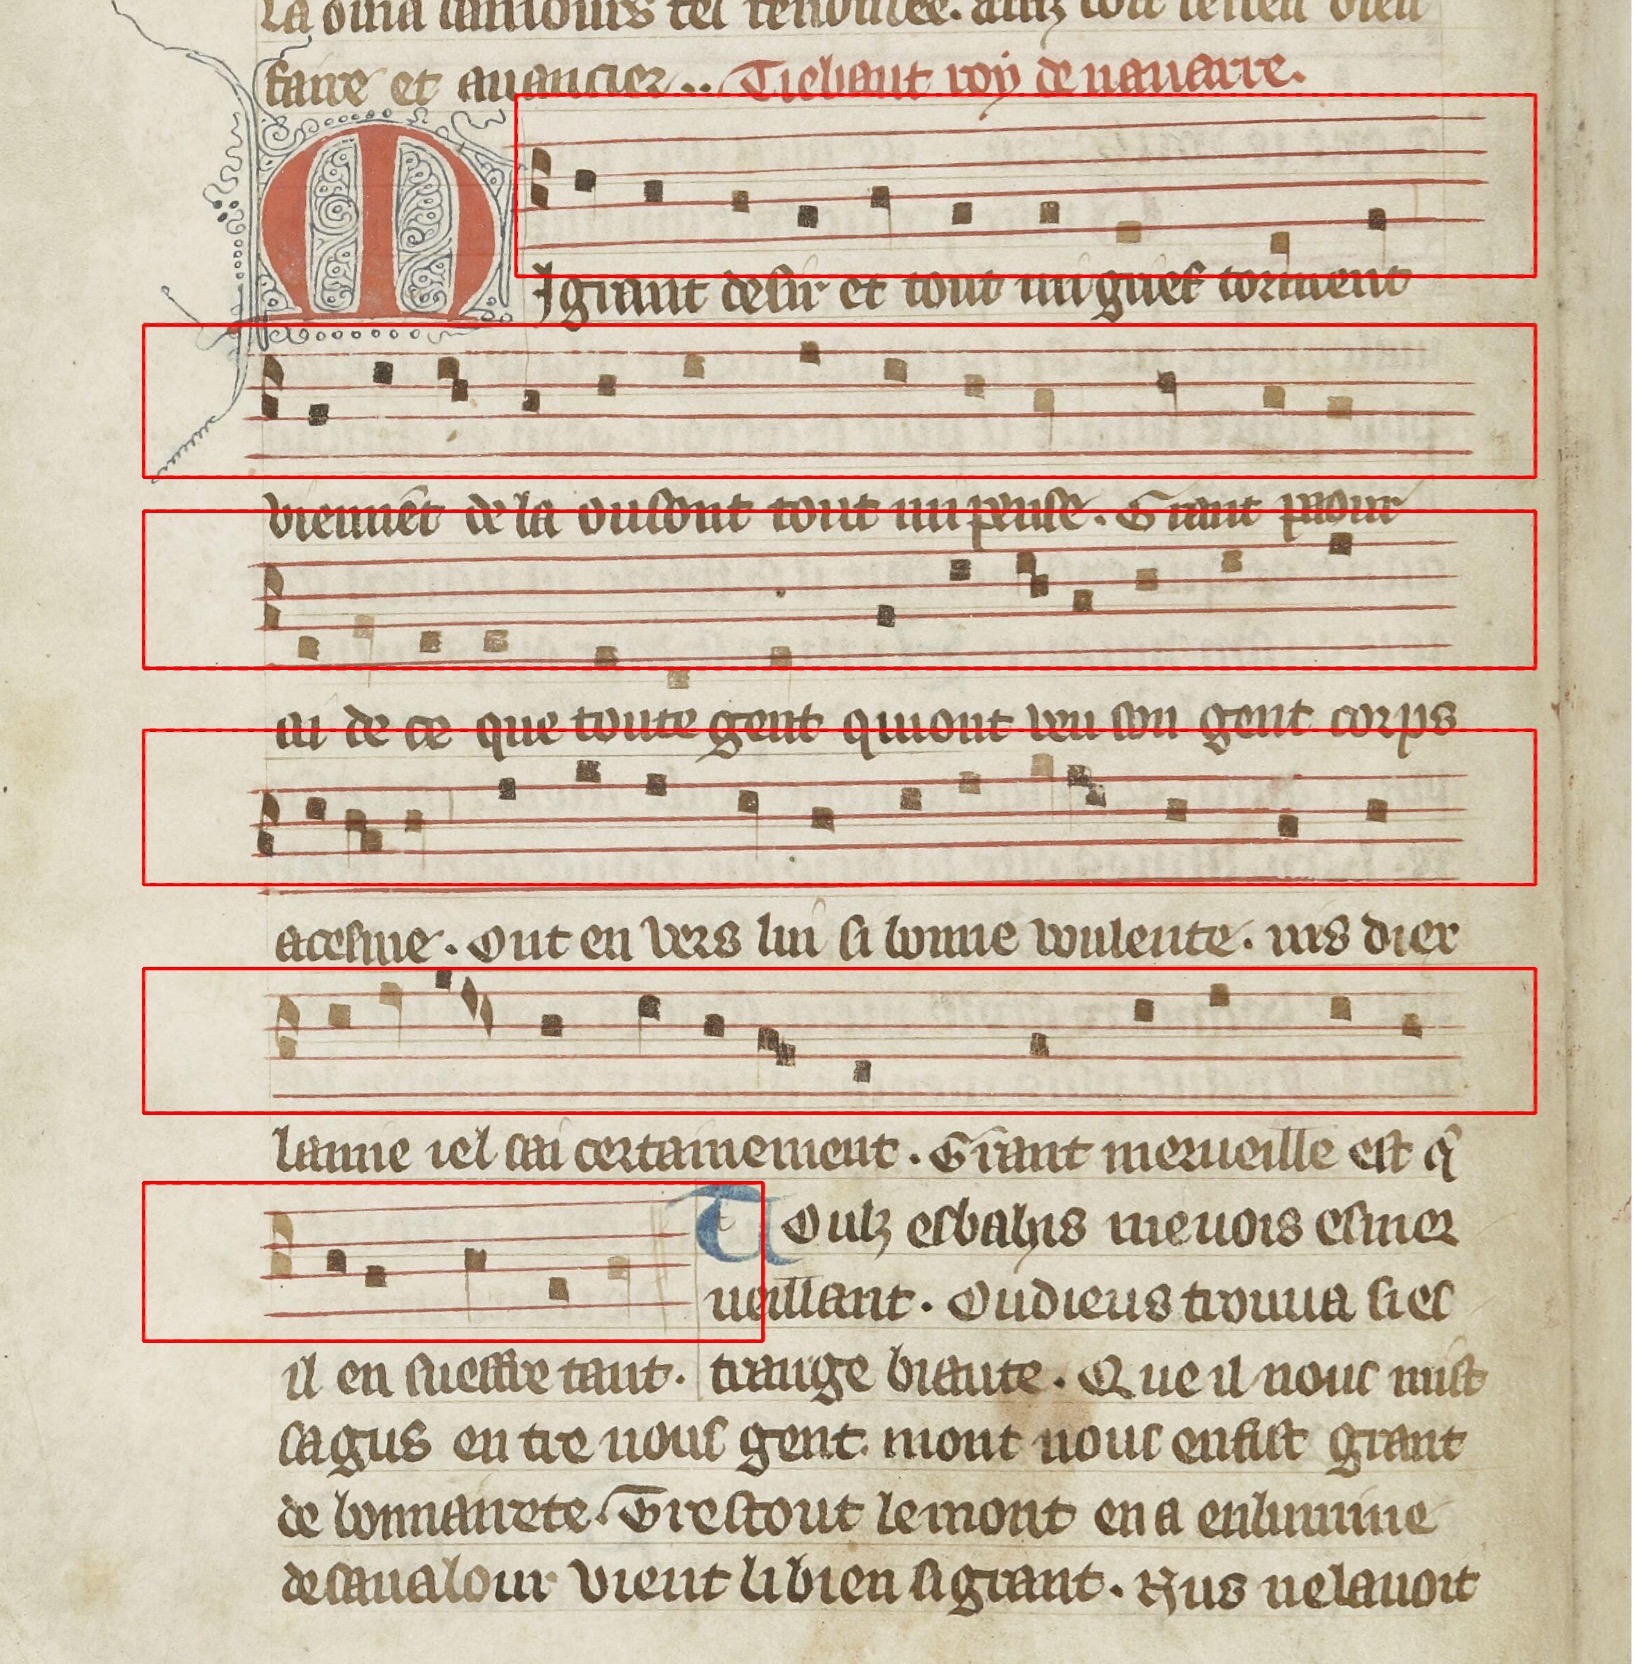 faire et auancier.. Tiebaut roy de nauarre.
MI grant desir et tout mi grief torment
viennēt de la ou sont tout mi pense. Grant paour
ai de ce que toute gent qui ont veu son gent corps
acesme. Ont en vers lui si bonne voulente. nis diex
lamie iel sai certainement. Grant merueille est q̃
il en sueffre tant.
Toulz esbahis me vois esmer
ueillant. Ou dieus trouua si es
trange biaute. Que il nous mist
ca gus entre nous gent mont nous enfist grant
debonnairete. Trestout le mont en a enlumine
de sa ualour vient li bien si grant. Nus ne la uoit